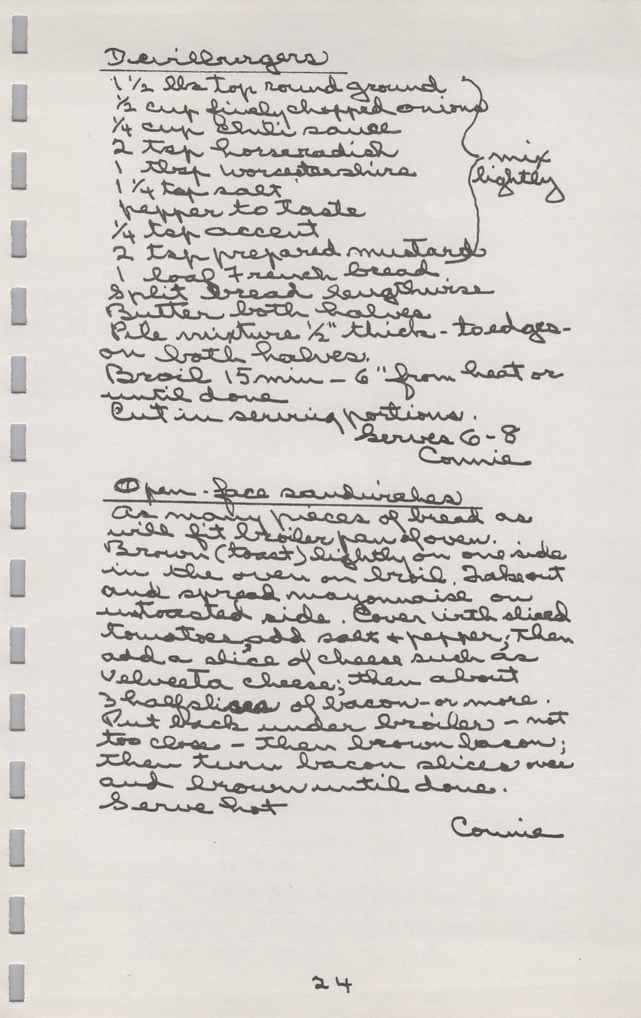 Devilburgers
1 1/2 lbs top round ground
1/2 cup finely chopped onions
1/4 cup chili sauce
2 tsp horseradish
1 tbsp worcestershire
1 1/4 tsp salt
pepper to taste
1/4 tsp accent
2 tsp prepared mustard
mix
lightly
1 loaf French bread
Split bread lengthwise
Butter both halves
Pile mixture 1/2" thick - to edges -
on both halves.
Broil 15 min - 6" from heat or
until done
Cut in serving portions.
Serves 6-8
Connie
Open-face sandwiches
As many pieces of bread as
will fit broiler pan of oven.
Brown (toast) lightly on one side
in the oven on broil. Take out
and spread mayonnaise on
untoasted side. Cover with sliced
tomatoes, add salt + pepper; then
add a slice of cheese such as
Velveeta cheese; then about
3 half slices of bacon - or more.
Put back under broiler - not
too close - then brown bacon;
then turn bacon slices over
and brown until done.
Serve hot
Connie
24